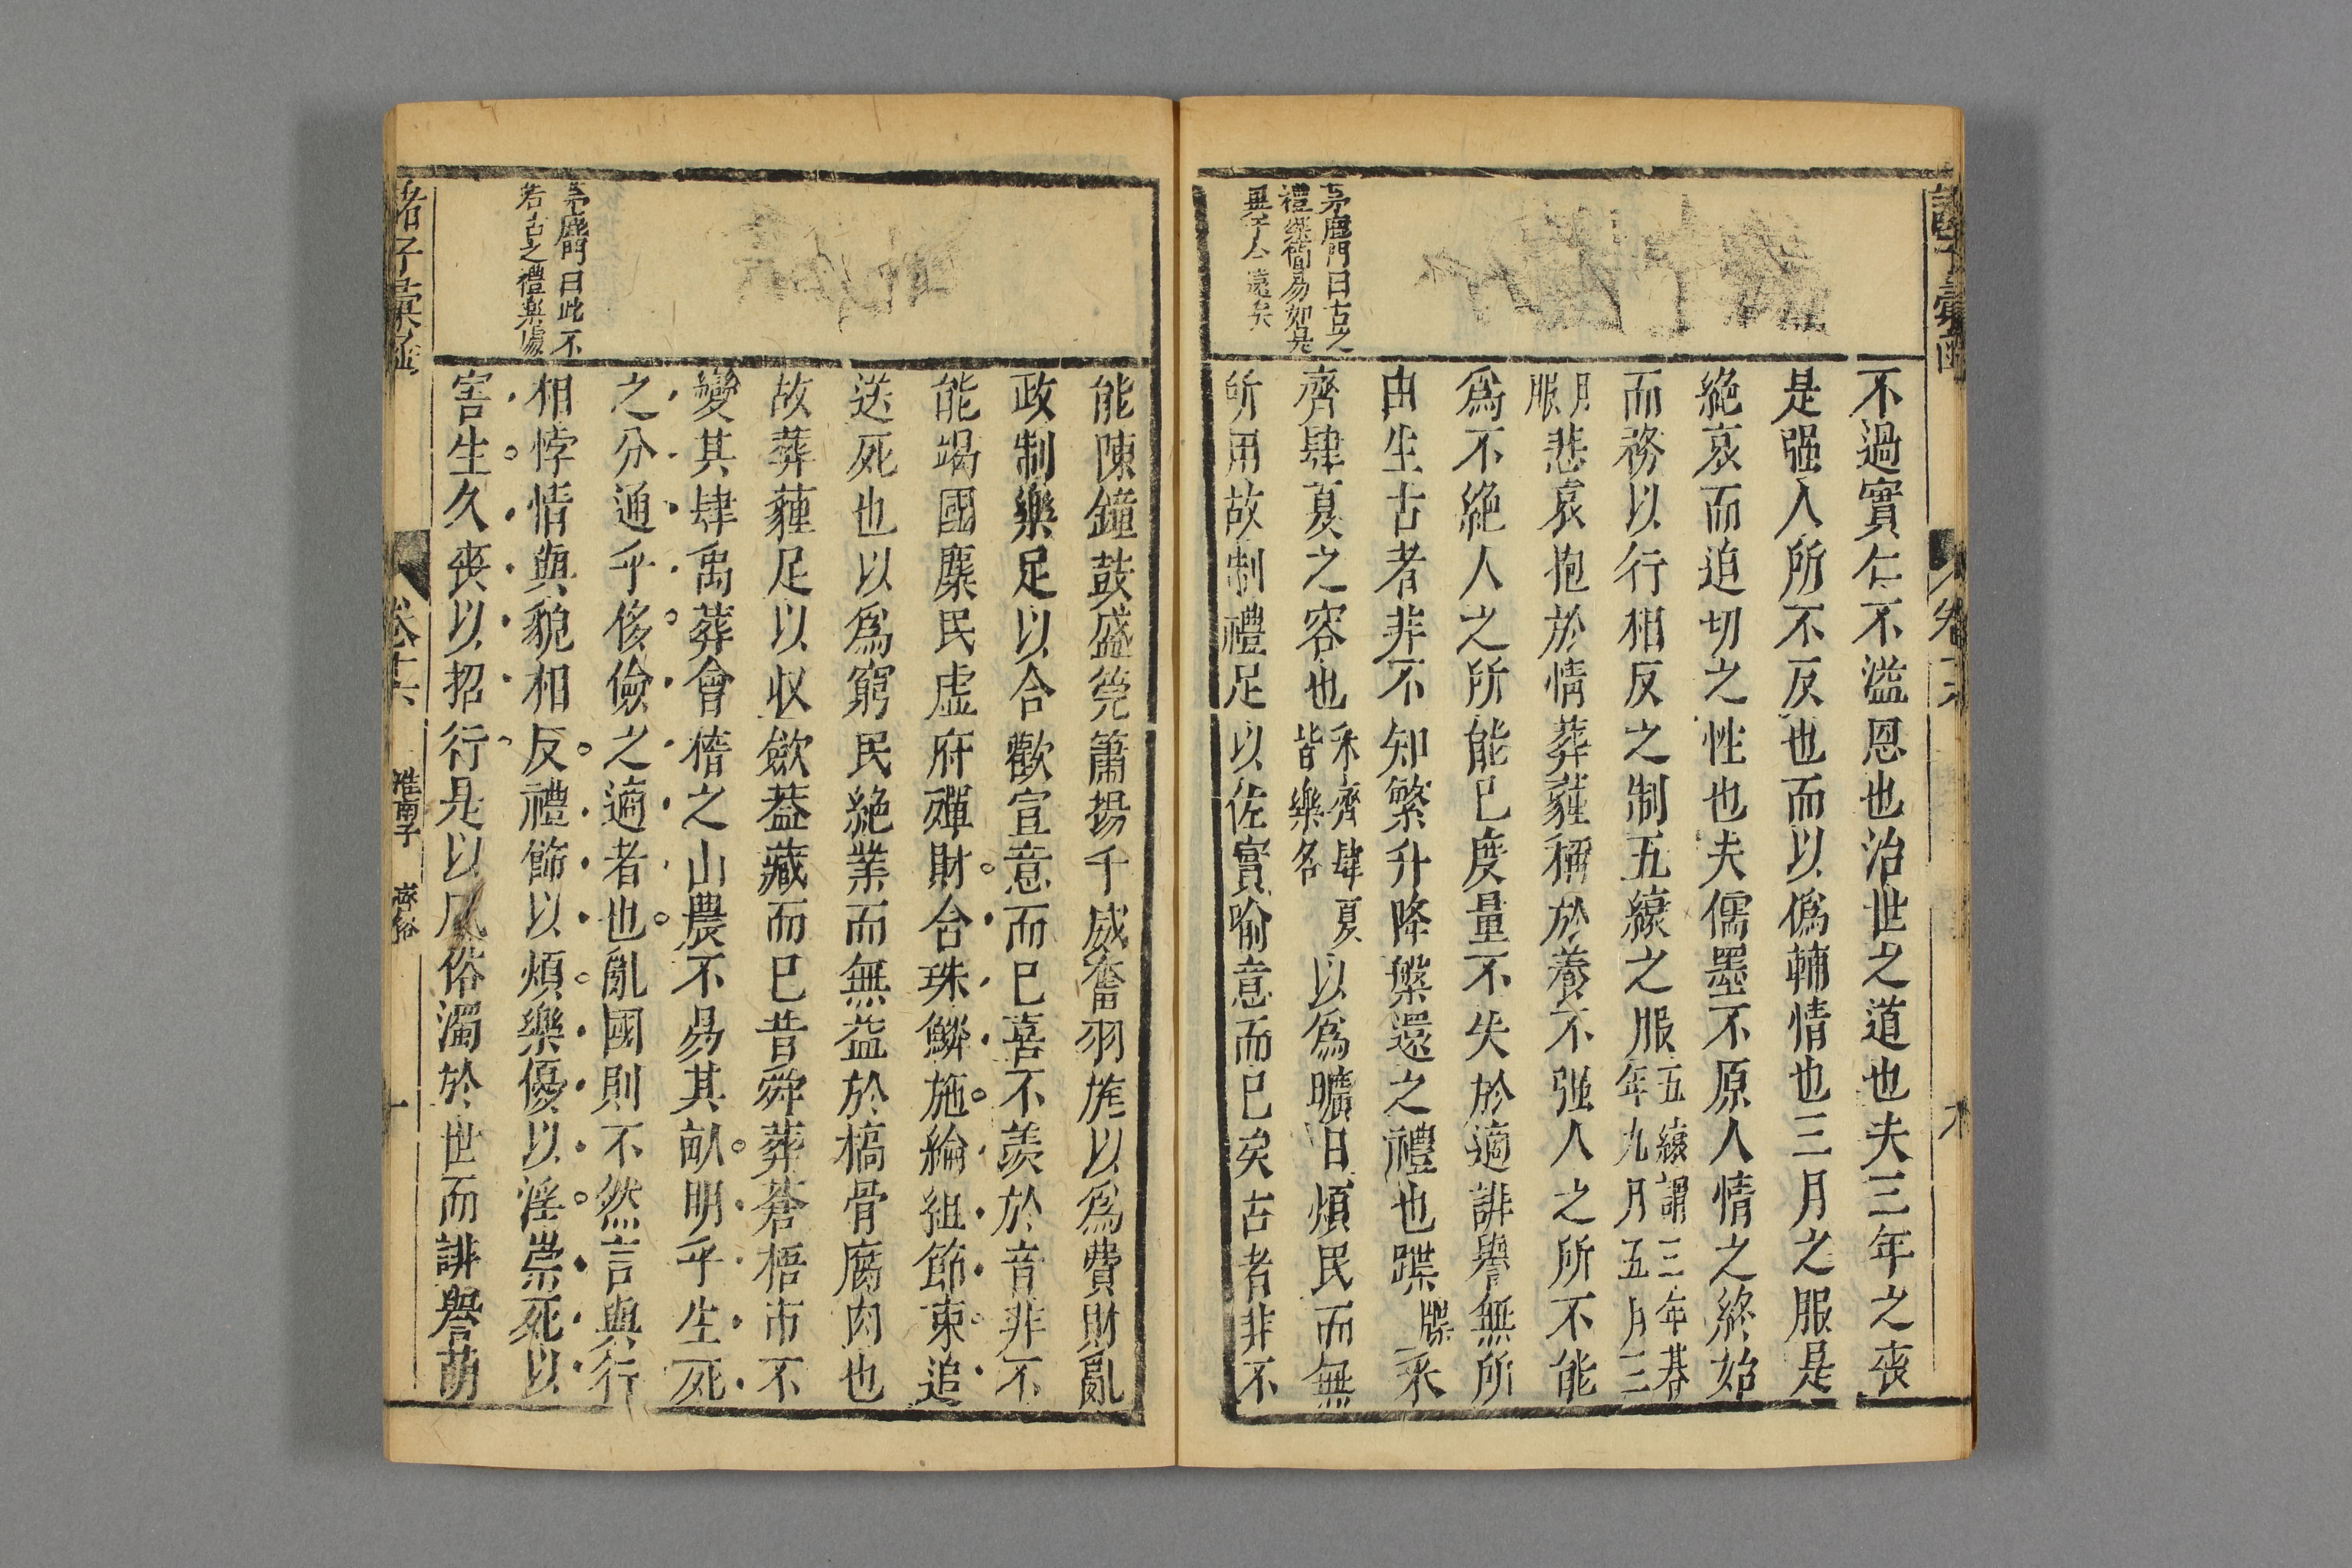 茅鹿門曰古之
禮樂簡易如是
無乎今遠矣
不過實仁不溢恩也治世之道也夫三年之喪
是强人所不及也而以僞輔情也三月之服是
絶哀而迫切之性也夫儒墨不原人情之終始
而務以行相反之制五縗之服五縗謂三年朞年九月五月三
月服悲哀抱於情葬薶稱於養不强人之所不能
爲不絶人之所能已度量不失於適誹譽無所
由生古者非不知繁升降槃還之禮也蹀牒采
齊肆夏之容也采齊肆夏皆樂名以爲曠日煩民而無
所用故制禮足以佐實喻意而已矣古者非不
茅鹿門曰此不
若古之禮樂處
能陳鐘鼓盛筦簫揚干戚奮羽旄以爲費財亂
政制樂足以合歡宣意而已喜不羨於音非不
能竭國麋民虛府殫財含珠鱗施綸組節束追
送死也以爲窮民絶業而無益於槁骨腐肉也
故葬薶足以収歛葢藏而已昔舜葬蒼梧市不
變其肆禹葬會稽之山農不易其畝明乎生死
之分通乎侈儉之適者也亂國則不然言與行
相悖情與貌相反禮飾以煩樂優以淫崇死以
害生久喪以招行是以風俗濁於世而誹譽萌
諸子彙函
卷十六
淮南子 齊俗